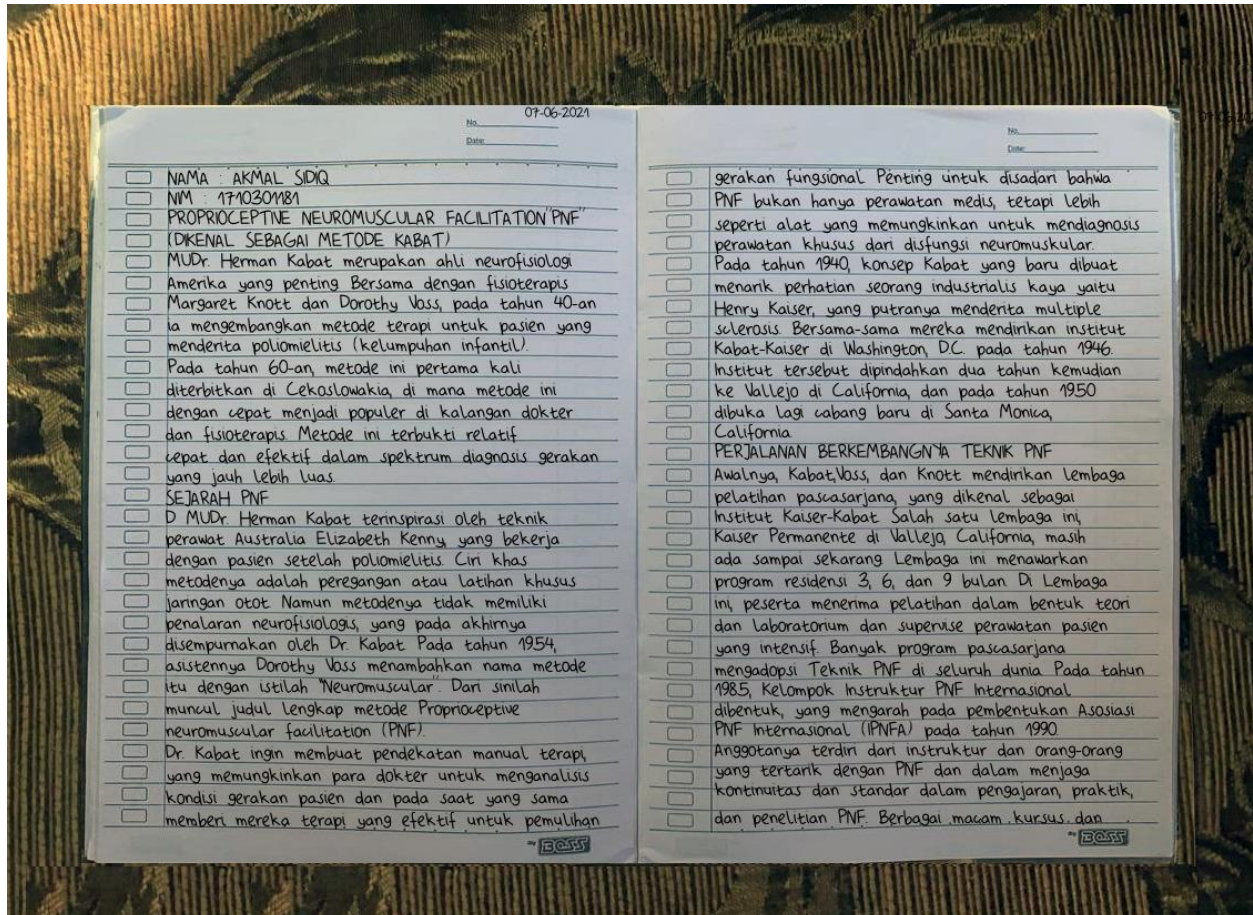 07-06-2021
No.
Date:
NAMA : AKMAL SIDIQ
NIM : 1710301181
PROPRIOCEPTIVE NEUROMUSCULAR FACILITATION "PNF"
(DIKENAL SEBAGAI METODE KABAT)
MUDr. Herman Kabat merupakan ahli neurofisiologi
Amerika yang penting Bersama dengan fisioterapis
Margaret Knott dan Dorothy Voss, pada tahun 40-an
ia mengembangkan metode terapi untuk pasien yang
menderita poliomielitis (kelumpuhan infantil).
Pada tahun 60-an, metode ini pertama kali
diterbitkan di Cekoslowakia, di mana metode ini
dengan cepat menjadi populer di kalangan dokter
dan fisioterapis. Metode ini terbukti relatif
cepat dan efektif dalam spektrum diagnosis gerakan
yang jauh lebih luas.
SEJARAH PNF
D MUDr. Herman Kabat terinspirasi oleh teknik
perawat Australia Elizabeth Kenny, yang bekerja
dengan pasien setelah poliomielitis. Ciri khas
metodenya adalah peregangan atau latihan khusus
jaringan otot Namun metodenya tidak memiliki
penalaran neurofisiologis, yang pada akhirnya
disempurnakan oleh Dr. Kabat Pada tahun 1954,
asistennya Dorothy Voss menambahkan nama metode
itu dengan istilah "Neuromuscular". Dari sinilah
muncul judul lengkap metode Proprioceptive
neuromuscular facilitation (PNF).
Dr. Kabat ingin membuat pendekatan manual terapi,
yang memungkinkan para dokter untuk menganalisis
kondisi gerakan pasien dan pada saat yang sama
memberi mereka terapi yang efektif untuk pemulihan
by BOSS
No.
Date:
gerakan fungsional. Penting untuk disadari bahwa
PNF bukan hanya perawatan medis, tetapi lebih
seperti alat yang memungkinkan untuk mendiagnosis
perawatan khusus dari disfungsi neuromuskular.
Pada tahun 1940, konsep Kabat yang baru dibuat
menarik perhatian seorang industrialis kaya yaitu
Henry Kaiser, yang putranya menderita multiple
sclerosis. Bersama-sama mereka mendirikan institut
Kabat-Kaiser di Washington, D.C. pada tahun 1946.
Institut tersebut dipindahkan dua tahun kemudian
ke Vallejo di California, dan pada tahun 1950
dibuka lagi cabang baru di Santa Monica,
California
PERJALANAN BERKEMBANGNYA TEKNIK PNF
Awalnya, Kabat, Voss, dan Knott mendirikan Lembaga
pelatihan pascasarjana, yang dikenal sebagai
Institut Kaiser-Kabat Salah satu lembaga ini,
Kaiser Permanente di Vallejo, California, masih
ada sampai sekarang Lembaga ini menawarkan
program residensi 3, 6, dan 9 bulan. Di Lembaga
ini, peserta menerima pelatihan dalam bentuk teori
dan laboratorium dan supervise perawatan pasien
yang intensif. Banyak program pascasarjana
mengadopsi Teknik PNF di seluruh dunia Pada tahun
1985, Kelompok Instruktur PNF Internasional
dibentuk, yang mengarah pada pembentukan Asosiasi
PNF Internasional (IPNFA) pada tahun 1990.
Anggotanya terdiri dari instruktur dan orang-orang
yang tertarik dengan PNF dan dalam menjaga
kontinuitas dan standar dalam pengajaran, praktik,
dan penelitian PNF. Berbagai macam kursus dan
by BOSS